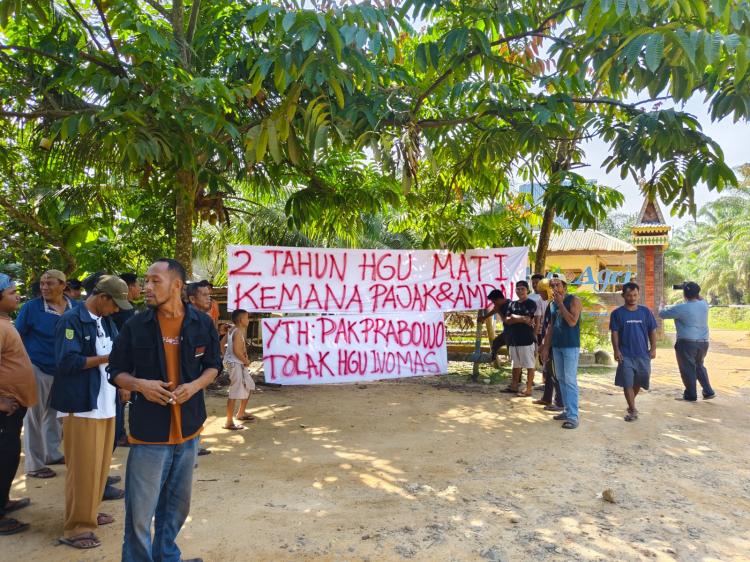 2 TAHUN HGU MATI
KEMANA PAJAK &
YTH: PAK PRABOWO
TOLAK HGU IVOMAS
Agri